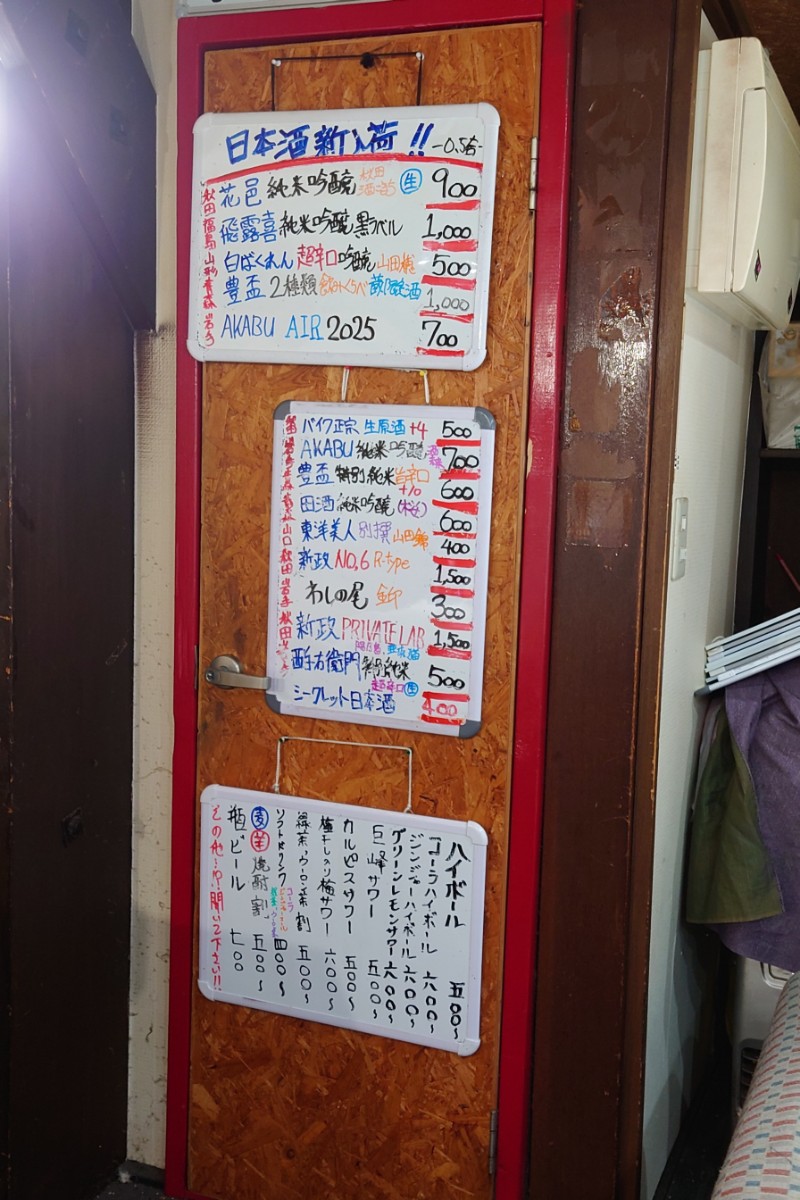 日本酒新入荷!! -0.5合-
秋田 花邑 純米吟醸 生 900
福島 飛露喜 純米吟醸 黒ラベル 1,000
山形 白ばくれん 超辛口 吟醸 山田錦 500
青森 豊盃 2種類 飲みくらべ 蔵限定酒 1,000
岩手 AKABU AIR 2025 700
バイク正宗 生原酒 +4 500
AKABU 純米吟醸 700
豊盃 特別純米 旨辛口 +10 600
田酒 純米吟醸 600
山口 東洋美人 別撰 山田錦 400
秋田 新政 NO,6 R-type 1,500
岩手 わしの尾 金印 300
秋田 新政 PRIVATE LAB 亜麻猫 1,500
酉与右衛門 特別純米 500
シークレット日本酒 超辛口 生 400
ハイボール 五〇〇〜
コーラハイボール 六〇〇〜
ジンジャーハイボール 六〇〇〜
グリーンレモンサワー 六〇〇〜
巨峰サワー 五〇〇〜
カルピスサワー 五〇〇〜
梅干し入り梅サワー 六〇〇〜
緑茶・ウーロン茶割 五〇〇〜
ソフトドリンク コーラ ジンジャーエール 緑茶、ウーロン茶 四〇〇〜
麦 芋 焼酎割 五〇〜
瓶ビール 七〇〇
その他…!? 聞いて下さい!!